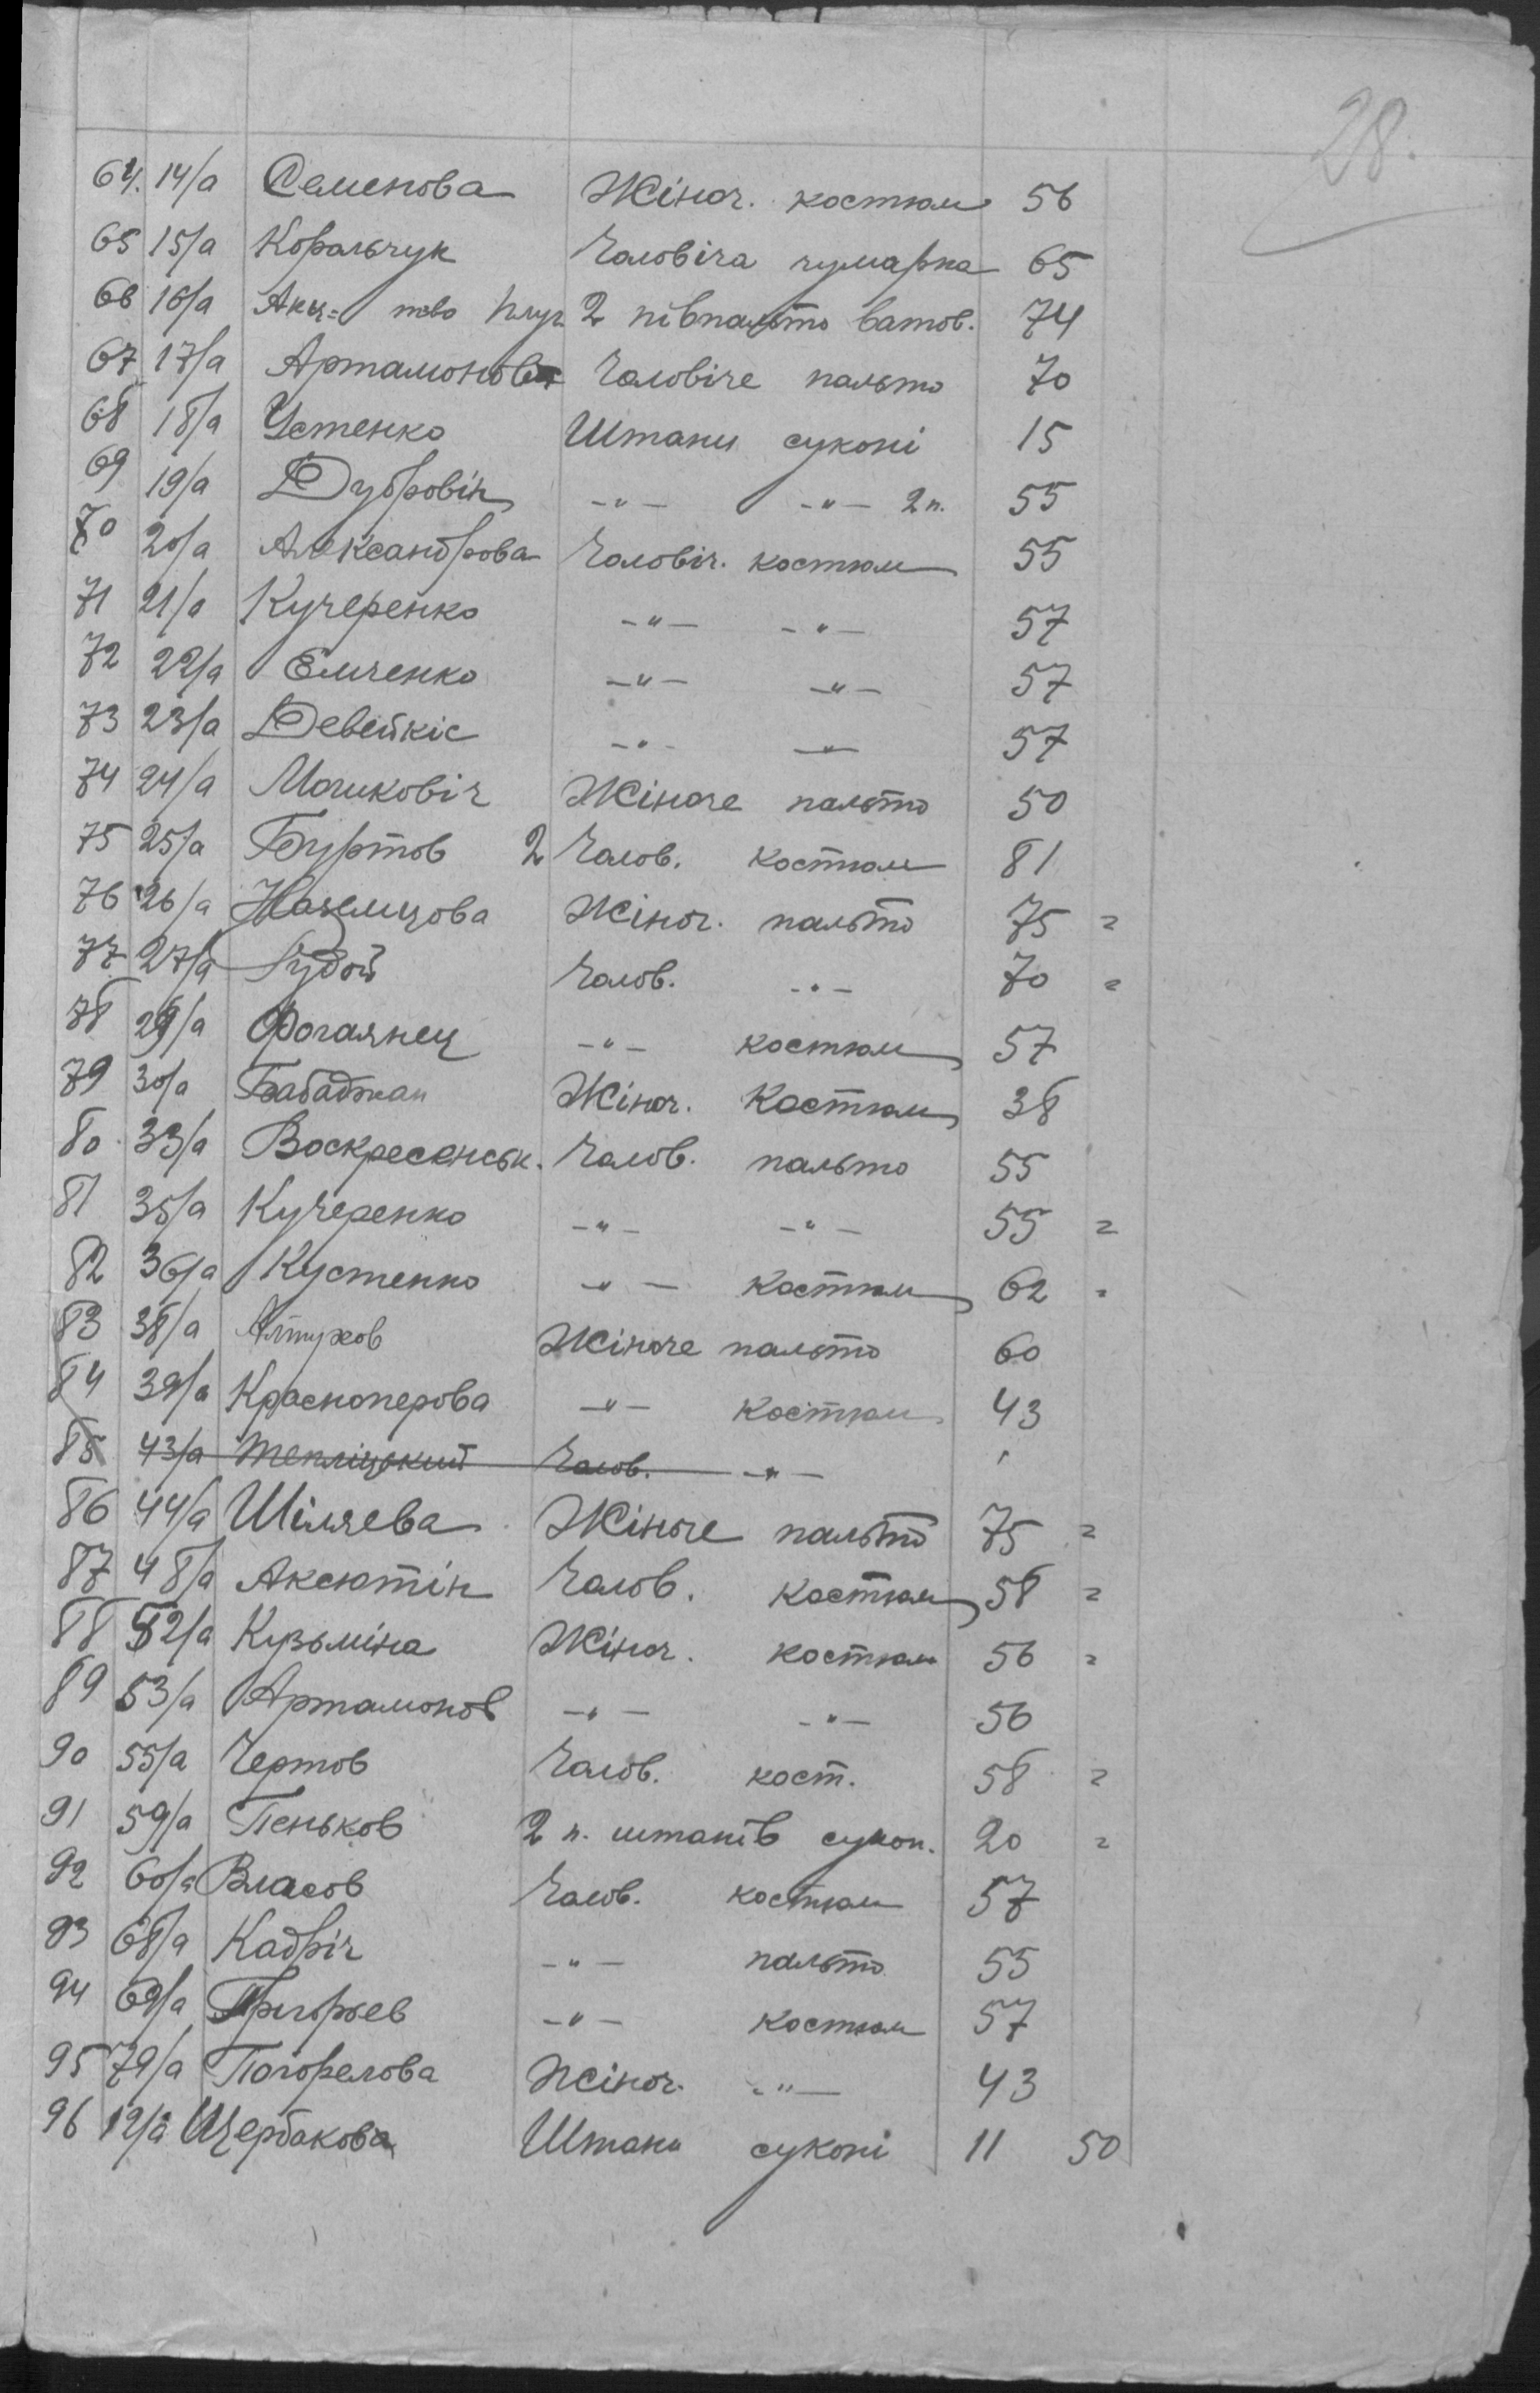 28.
64. 14/а Семенова Жіноч. костюм 56
65 15/а Ковальчук Чоловіча чумарка 65
66 16/а Акц= т-во 2 півпальто ватов. 74
67 17/а Артамонов Чоловіче пальто 70
68 18/а Устенко Штани суконі 15
69 19/а Дубровін -"- -"- 2 п. 55
70 20/а Александрова Чоловіч. костюм 55
71 21/а Кучеренко -"- -"- 57
72 22/а Емченко -"- -"- 57
73 23/а Девейкіс -"- -"- 57
74 24/а Мошковіч Жіноче пальто 50
75 25/а Буртов 2 Чолов. костюм 81
76 26/а Жіноч. пальто 75 =
77 27/а Рудой Чолов. -"- 70 =
78 29/а -"- костюм 57
79 30/а Бабаджан Жіноч. Костюм 38
80 33/а Воскресенськ. Чолов. пальто 55
81 35/а Кучеренко -"- -"- 55 =
82 36/а Кустенко -"- костюм 62 =
83 38/а Алтухов Жіноче пальто 60
84 39/а Красноперова -"- костюм 43
85 43/а Тепліцький Чолов. -"-
86 44/а Шіляева Жіноче пальто 75 =
87 48/а Аксютін Чолов. костюм 58 =
88 52/а Кузьміна Жіноч. костюм 56 =
89 53/а Артамонов -"- -"- 56
90 55/а Чертов Чолов. кост. 58 =
91 59/а Пеньков 2 п. штанів сукон. 20 =
92 60/а Власов Чолов. костюм 57
93 68/а Кадріч -"- пальто 55
94 69/а Григорьев -"- костюм 57
95 79/а Погорелова Жіноч. -"- 43
96 12/а Щербакова Штани суконі 11 50